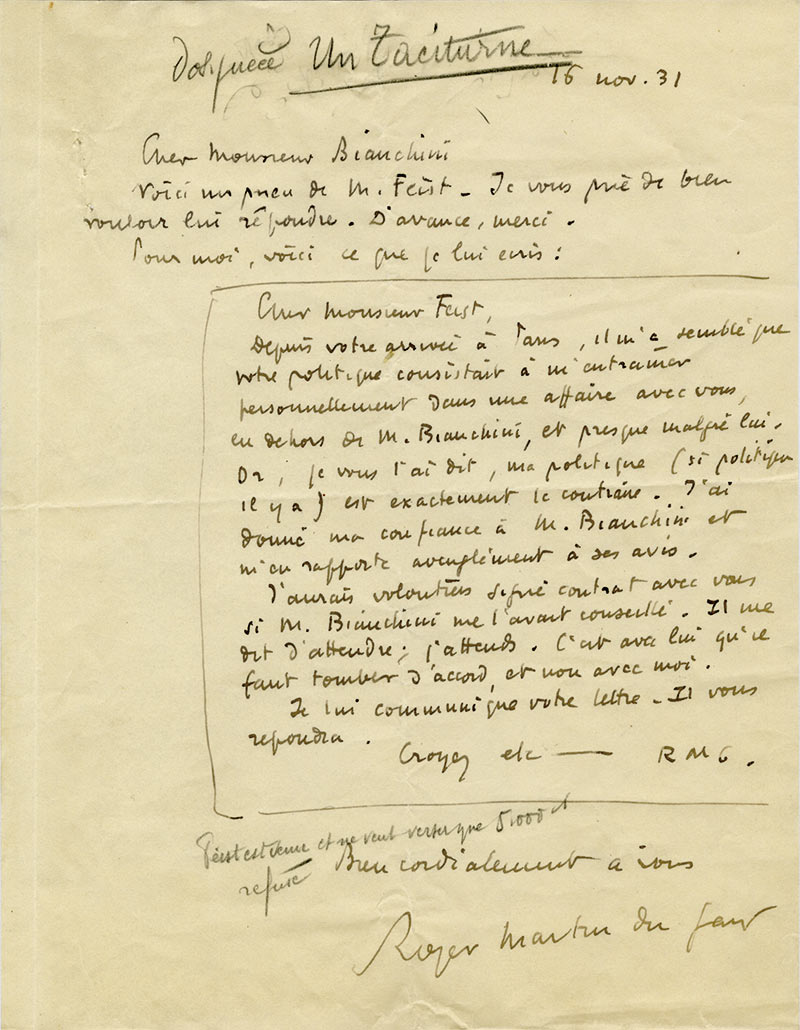 Un Taciturne
16 nov. 31
Cher Monsieur Bianchini
Voici un pneu de M. Feist - Je vous prie de bien
vouloir lui répondre. D'avance, merci.
Pour moi, voici ce que je lui écris :
Cher Monsieur Feist,
Depuis votre arrivée à Paris, il m'a semblé que
votre politique consistait à m'entraîner
personnellement dans une affaire avec vous,
en dehors de M. Bianchini, et presque malgré lui.
Or, je vous l'ai dit, ma politique (si politique
il y a) est exactement le contraire. J'ai
donné ma confiance à M. Bianchini et
m'en rapporte aveuglément à ses avis.
J'aurais volontiers signé contrat avec vous
si M. Bianchini me l'avait conseillé. Il me
dit d'attendre ; j'attends. C'est avec lui qu'il
faut tomber d'accord, et non avec moi.
Je lui communique votre lettre - Il vous
repondra.
Croyez etc — RMG.
Feist est venu et ne veut verser que 5.000 et
refuse
Bien cordialement à vous
Roger Martin du Gard